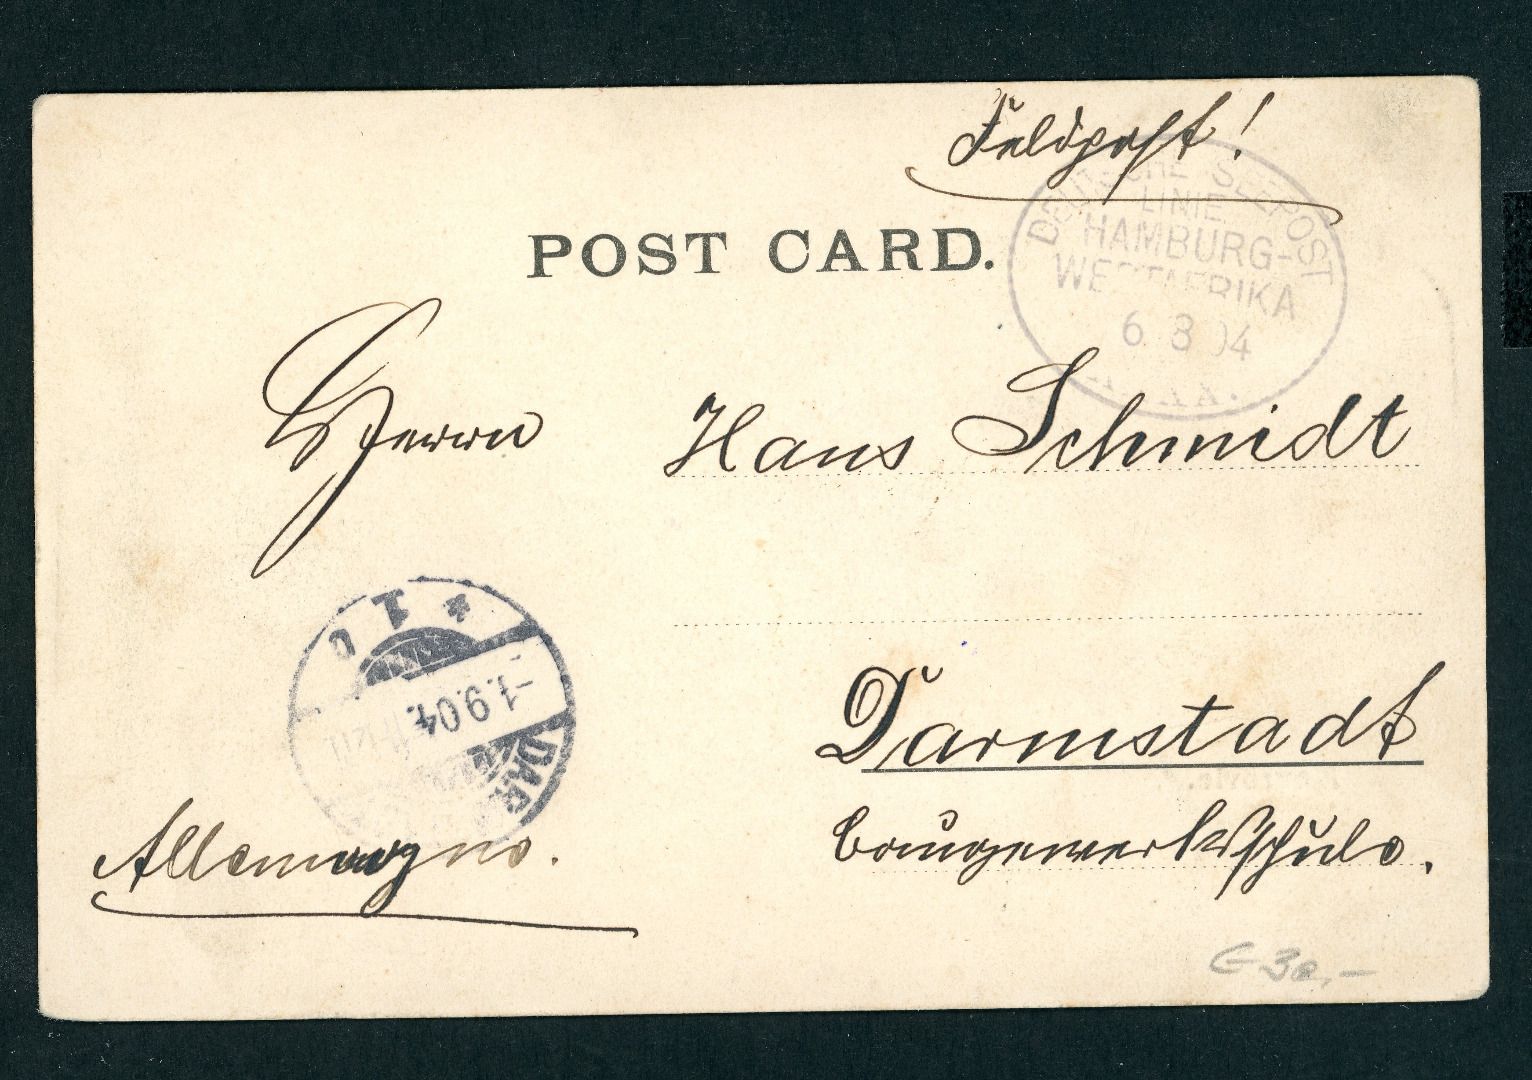 Feldpost!
DEUTSCHE SEEPOST
LINIE
HAMBURG-
WESTAFRIKA
6 8 04
POST CARD.
Herrn Hans Schmidt
* 1 0
-1.9.04.
DAR
Darmstadt
Baugewerksschule.
Allemagne.